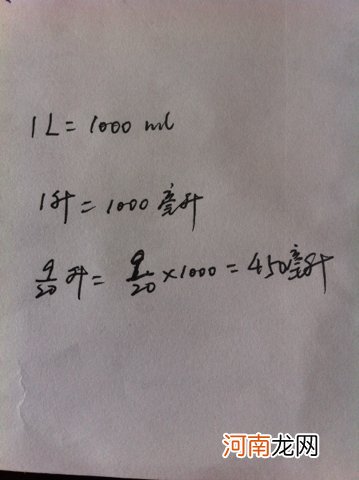 1L = 1000 ml
1升 = 1000 毫升
9/20 升 = 9/20 × 1000 = 450毫升
河南龙网